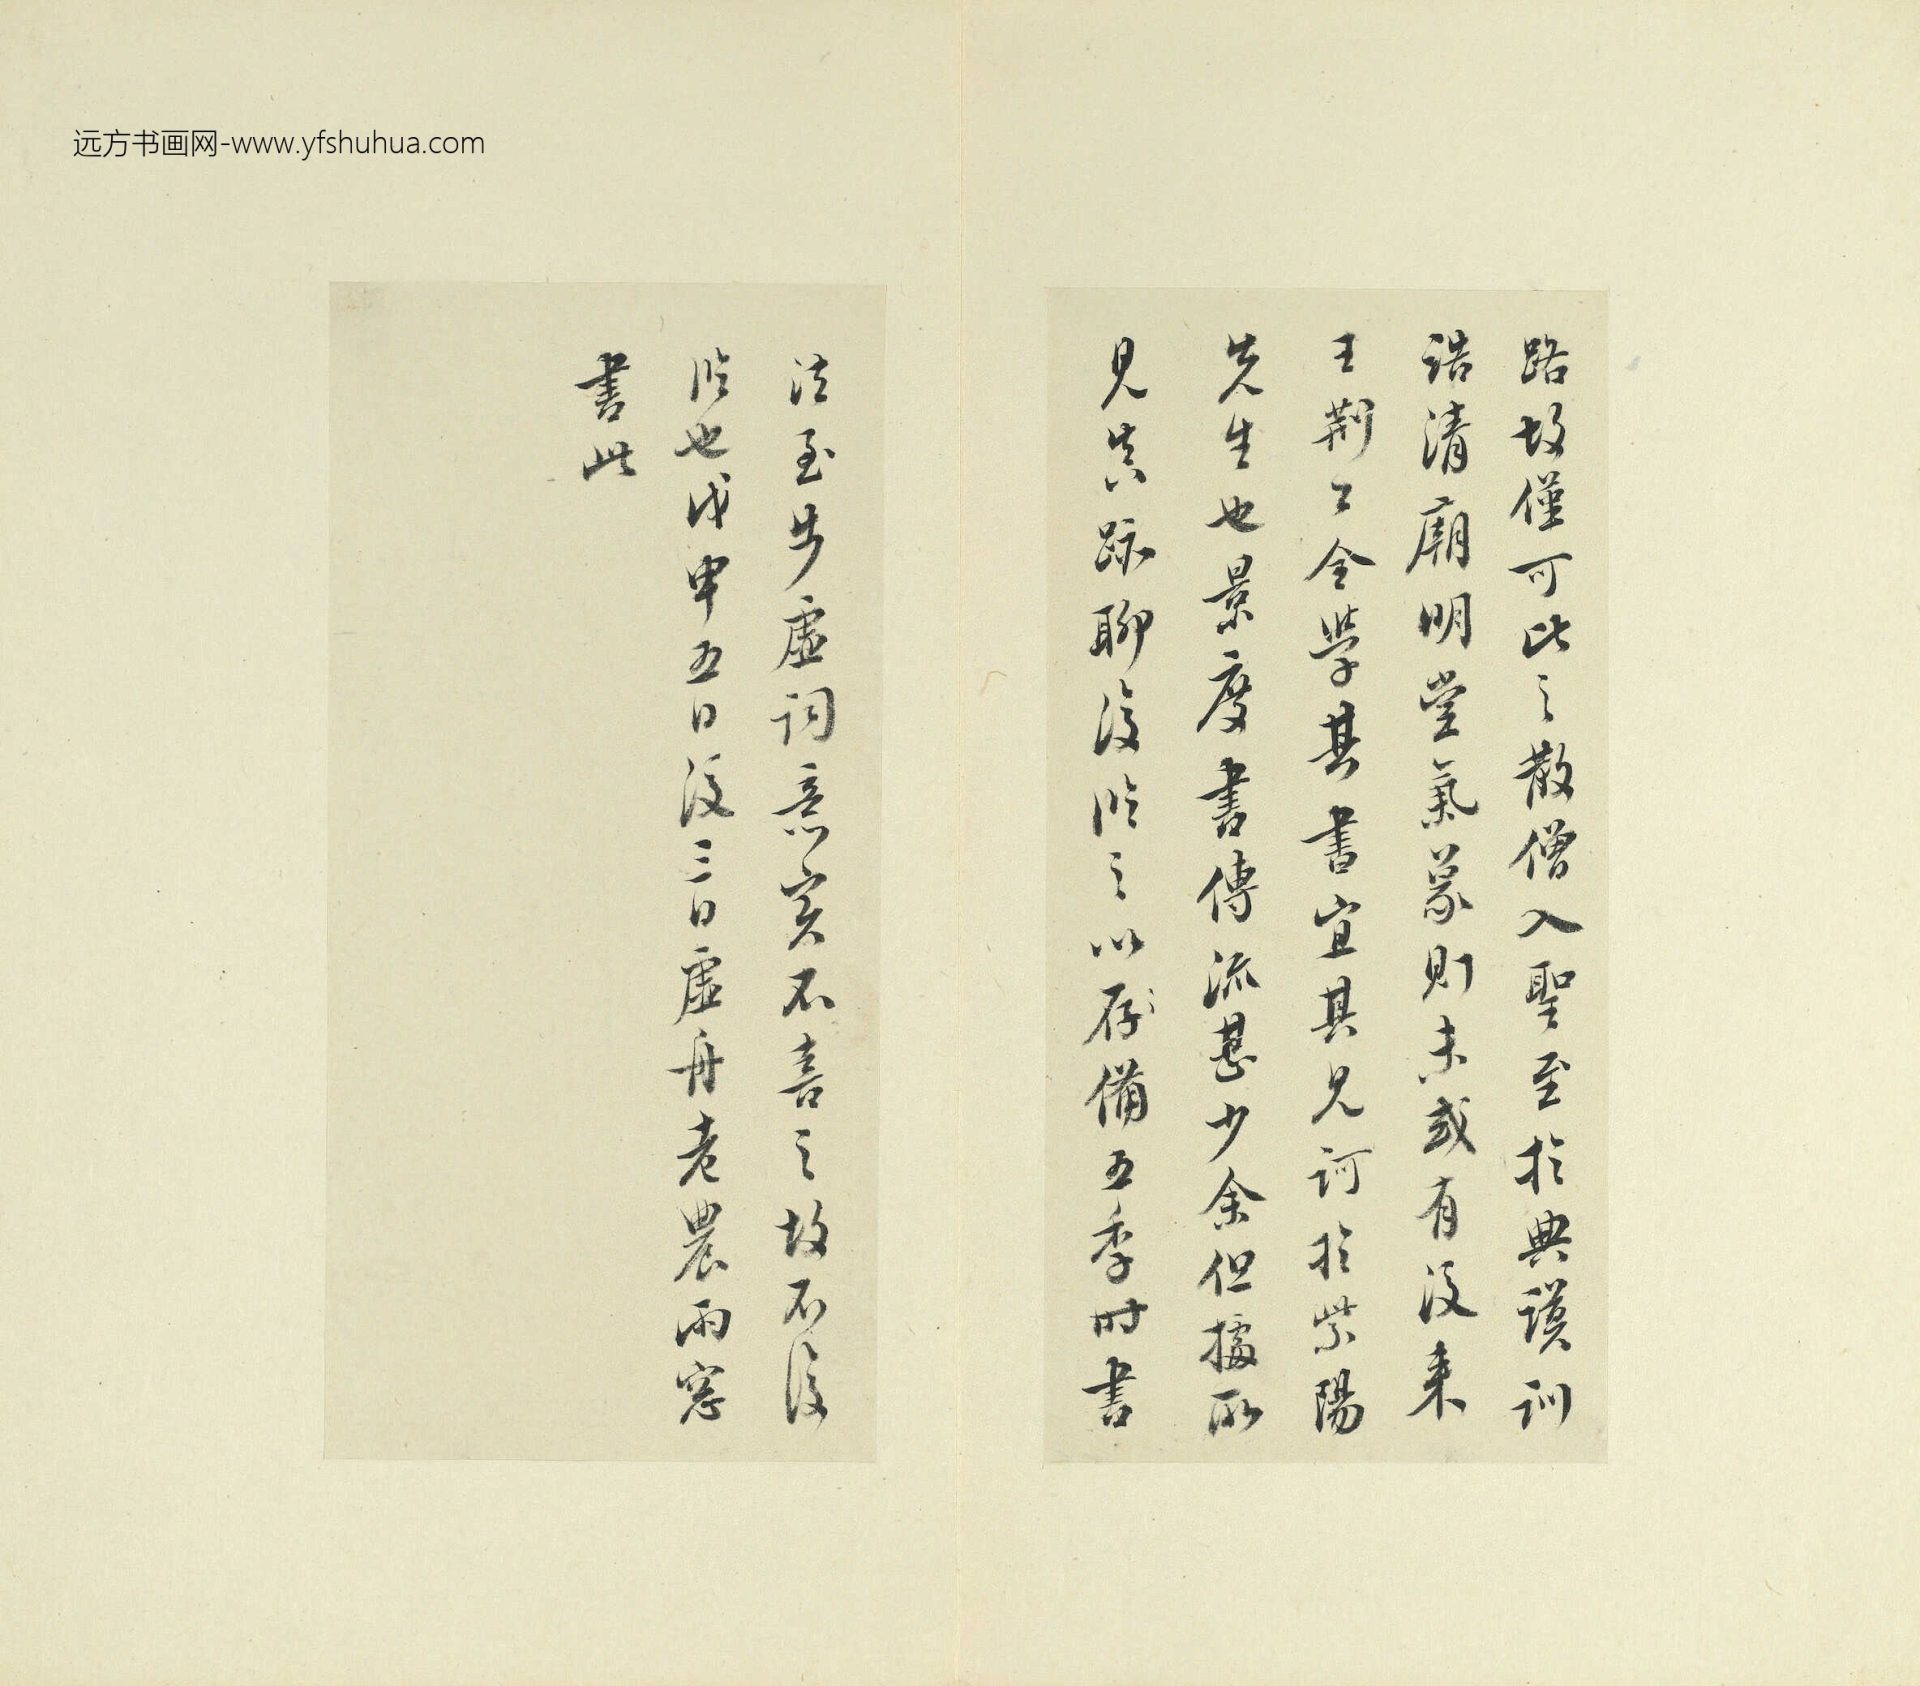 远方书画网-www.yfshuhua.com
路故僅可比之散僧入聖至於典謨訓
誥清廟明堂氣象則未或有沒来
王荆公全學其書宜其見訶於紫陽
先生也景度書傳流甚少余但據所
見真跡聊復臨之以存備五季時書
法至步虛詞意實不喜之故不復
臨也戊申五日後三日虛舟老農雨窓
書此